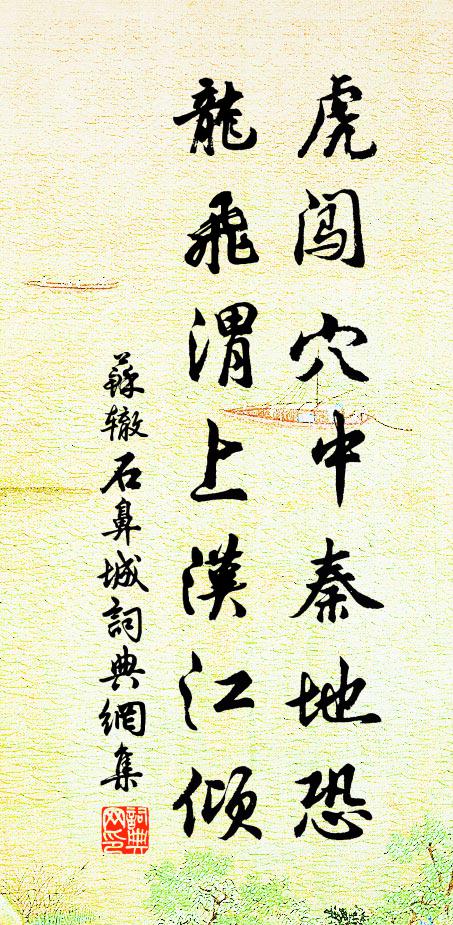 虎闯穴中秦地恐
龍飛渭上漢江倾
蘇辙石鼻城詞典網集
詞典网印